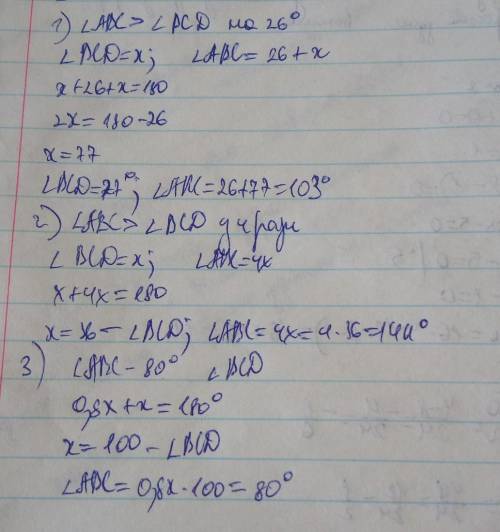 1) ∠ABC > ∠BCD на 26°
∠BCD = x; ∠ABC = 26 + x
x + 26 + x = 180
2x = 180 - 26
x = 77
∠BCD = 77°; ∠ABC = 26 + 77 = 103°
2) ∠ABC > ∠BCD у 4 рази
∠ BCD = x; ∠ABC = 4x
x + 4x = 180
x = 36 - ∠BCD; ∠ABC = 4x = 4 · 36 = 144°
3) ∠ABC - 80° ∠BCD
0,8x + x = 180°
x = 100 - ∠BCD
∠ABC = 0,8x · 100 = 80°